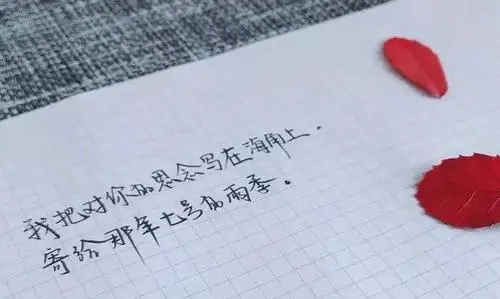 我把对你的思念写在海角上.
寄给那年七号的雨季。